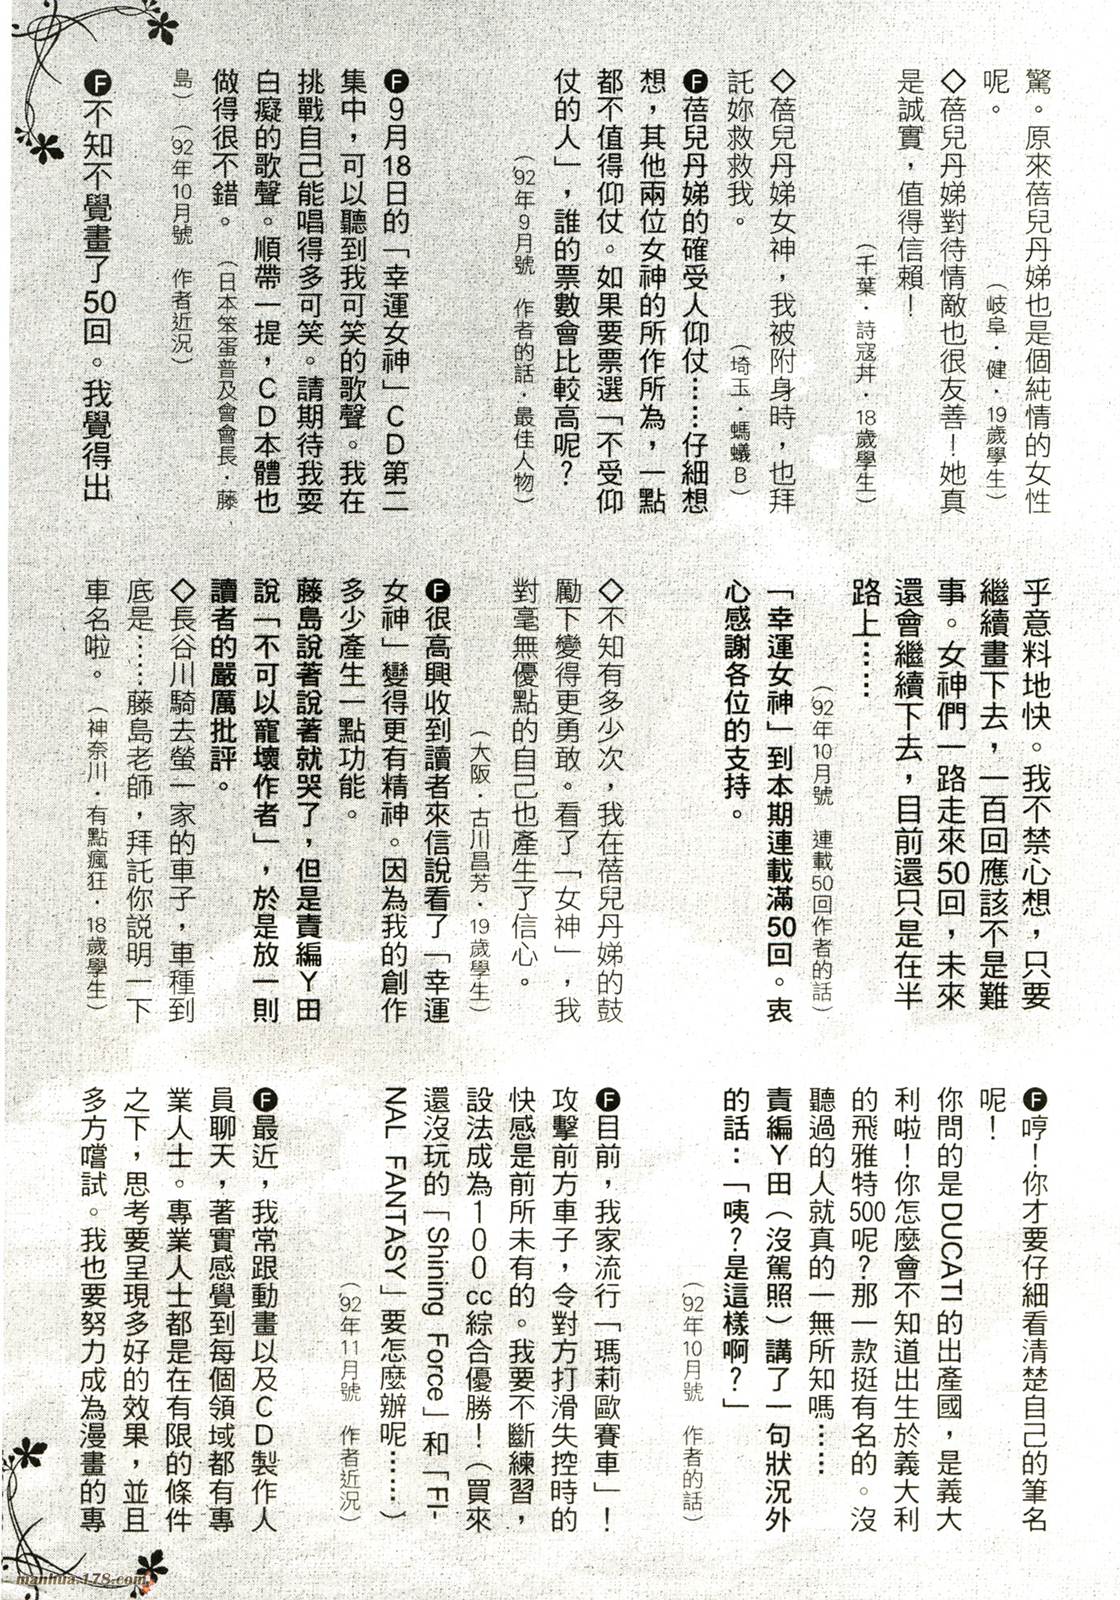 驚。原來蓓兒丹娣也是個純情的女性
呢。
（岐阜・健・19歲學生）
◇蓓兒丹娣對待情敵也很友善！她真
是誠實，值得信賴！
（千葉・詩寇丼・18歲學生）
◇蓓兒丹娣女神，我被附身時，也拜
託妳救救我。
（埼玉・螞蟻B）
Ⓕ蓓兒丹娣的確受人仰仗……仔細想
想，其他兩位女神的所作所為，一點
都不值得仰仗。如果要票選「不受仰
仗的人」，誰的票數會比較高呢？
（'92年9月號　作者的話・最佳人物）
Ⓕ9月18日的「幸運女神」CD第二
集中，可以聽到我可笑的歌聲。我在
挑戰自己能唱得多可笑。請期待我耍
白癡的歌聲。順帶一提，CD本體也
做得很不錯。（日本笨蛋普及會會長・藤
島）（'92年10月號　作者近況）
Ⓕ不知不覺畫了50回。我覺得出
乎意料地快。我不禁心想，只要
繼續畫下去，一百回應該不是難
事。女神們一路走來50回，未來
還會繼續下去，目前還只是在半
路上……
（'92年10月號　連載50回作者的話）
「幸運女神」到本期連載滿50回。衷
心感謝各位的支持。
◇不知有多少次，我在蓓兒丹娣的鼓
勵下變得更勇敢。看了「女神」，我
對毫無優點的自己也產生了信心。
（大阪・古川昌芳・19歲學生）
Ⓕ很高興收到讀者來信說看了「幸運
女神」變得更有精神。因為我的創作
多少產生一點功能。
藤島說著說著就哭了，但是責編Y田
說「不可以寵壞作者」，於是放一則
讀者的嚴厲批評。
◇長谷川騎去螢一家的車子，車種到
底是……藤島老師，拜託你說明一下
車名啦。（神奈川・有點瘋狂・18歲學生）
Ⓕ哼！你才要仔細看清楚自己的筆名
呢！
你問的是DUCATI的出產國，是義大
利啦！你怎麼會不知道出生於義大利
的飛雅特500呢？那一款挺有名的。沒
聽過的人就真的一無所知嗎……
責編Y田（沒駕照）講了一句狀況外
的話：「咦？是這樣啊？」
（'92年10月號　作者的話）
Ⓕ目前，我家流行「瑪莉歐賽車」！
攻擊前方車子，令對方打滑失控時的
快感是前所未有的。我要不斷練習，
設法成為100cc綜合優勝！（買來
還沒玩的「Shining Force」和「FI-
NAL FANTASY」要怎麼辦呢……）
（'92年11月號　作者近況）
Ⓕ最近，我常跟動畫以及CD製作人
員聊天，著實感覺到每個領域都有專
業人士。專業人士都是在有限的條件
之下，思考要呈現多好的效果，並且
多方嚐試。我也要努力成為漫畫的專
manhua.178.com